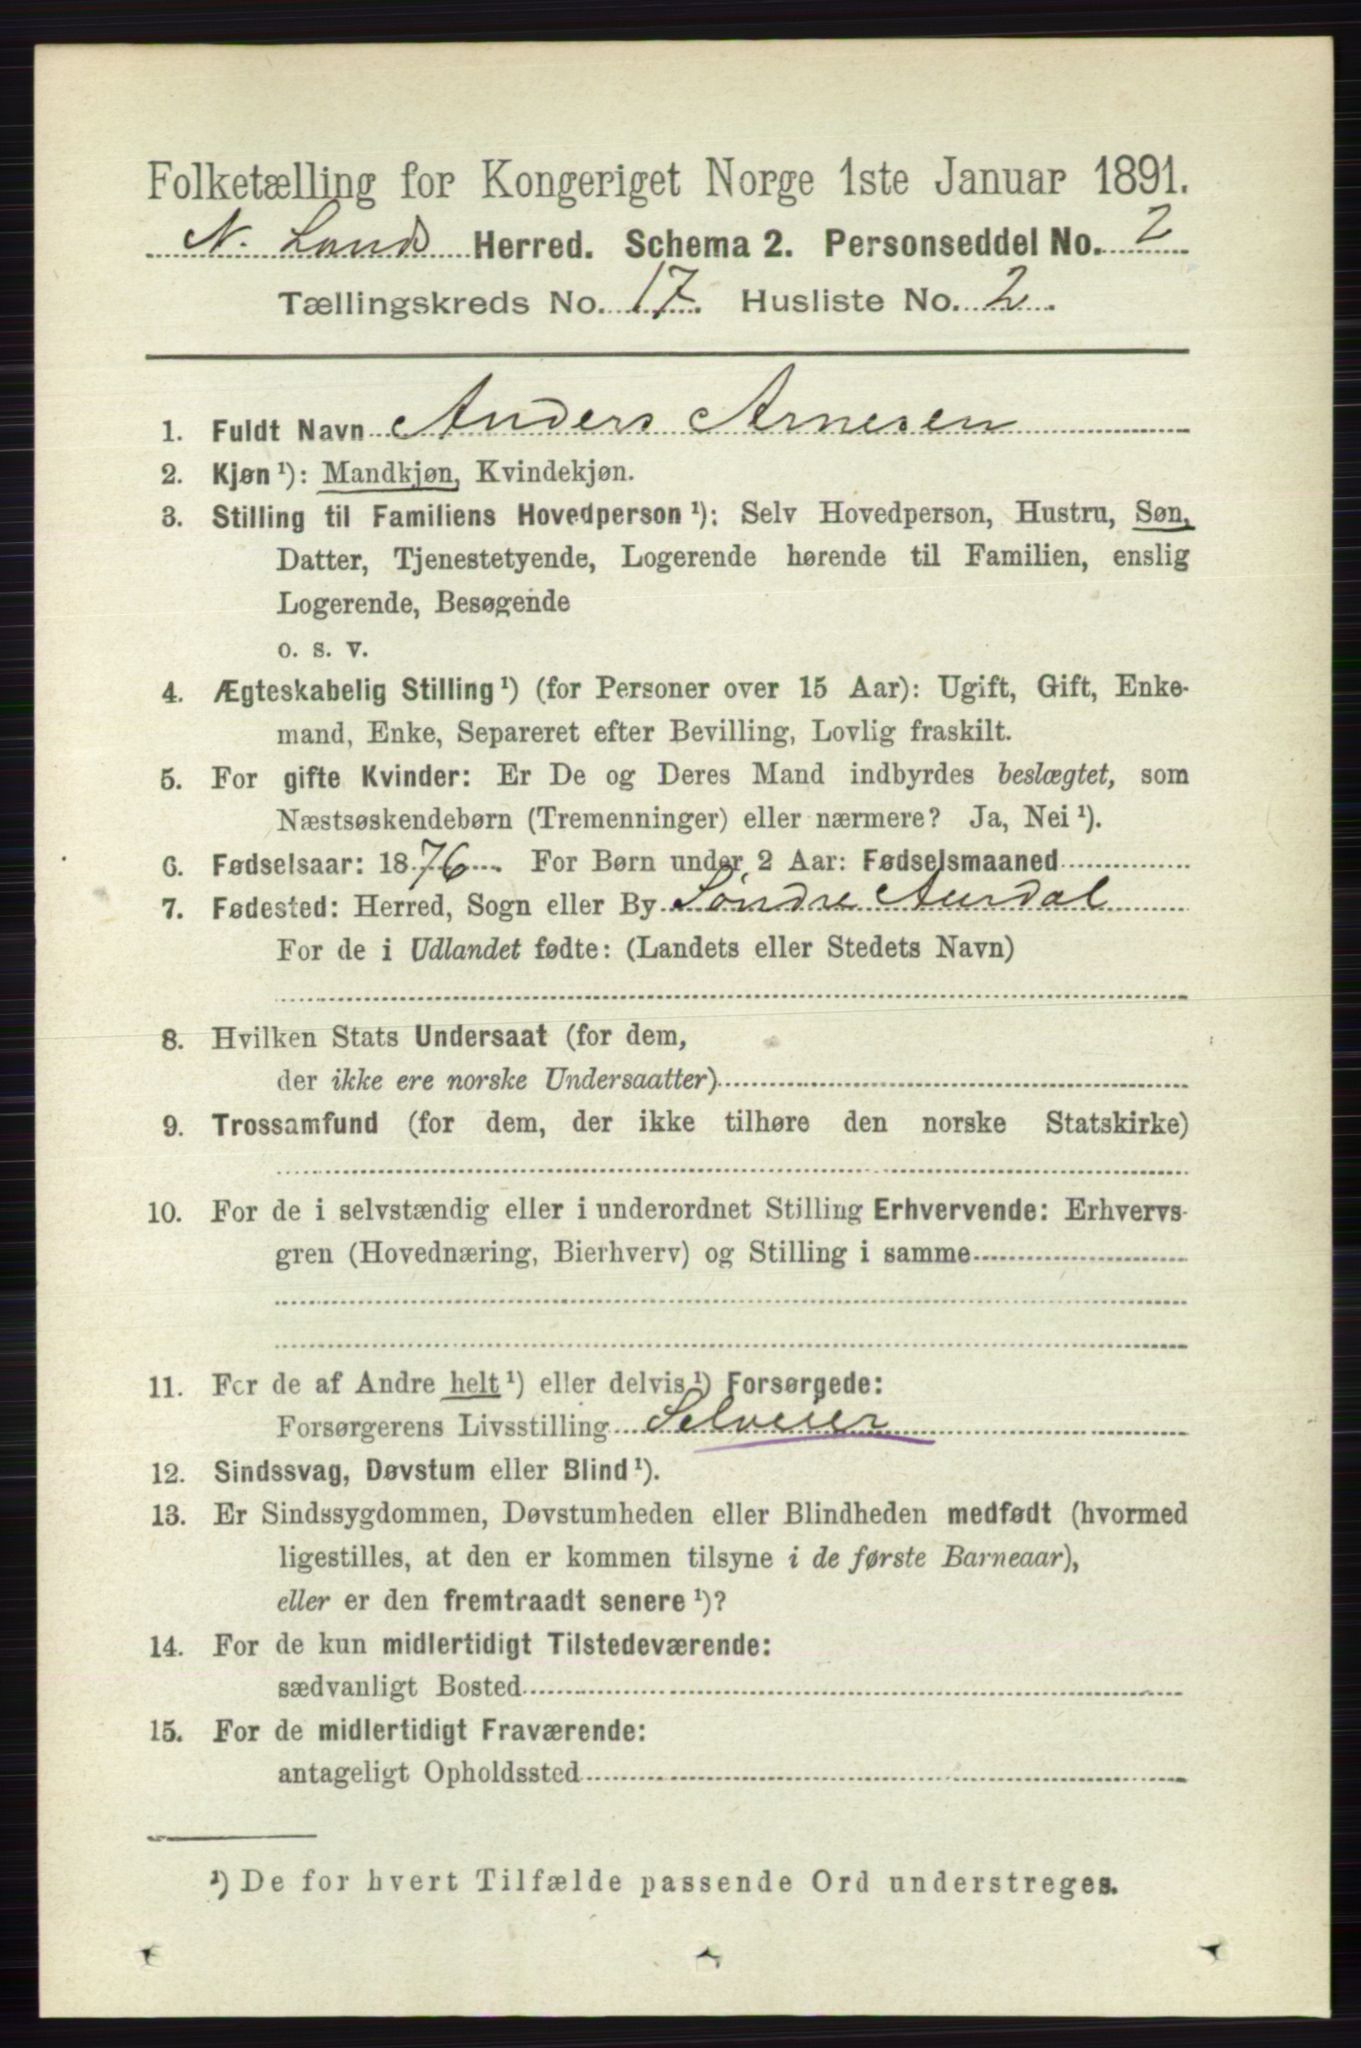 Folketælling for Kongeriget Norge 1ste Januar 1891.
N. Lands Herred. Schema 2. Personseddel No. 2
Tællingskreds No. 17. Husliste No. 2.
1. Fuldt Navn Anders Arnesen
2. Kjøn¹): Mandkjøn, Kvindekjøn.
3. Stilling til Familiens Hovedperson¹): Selv Hovedperson, Hustru, Søn,
Datter, Tjenestetyende, Logerende hørende til Familien, enslig
Logerende, Besøgende
o. s. v.
4. Ægteskabelig Stilling¹) (for Personer over 15 Aar): Ugift, Gift, Enke-
mand, Enke, Separeret efter Bevilling, Lovlig fraskilt.
5. For gifte Kvinder: Er De og Deres Mand indbyrdes beslægtet, som
Næstsøskendebørn (Tremenninger) eller nærmere? Ja, Nei¹).
6. Fødselsaar: 1876. For Børn under 2 Aar: Fødselsmaaned
7. Fødested: Herred, Sogn eller By Søndre Aurdal
For de i Udlandet fødte: (Landets eller Stedets Navn)
8. Hvilken Stats Undersaat (for dem,
der ikke ere norske Undersaatter)
9. Trossamfund (for dem, der ikke tilhøre den norske Statskirke)
10. For de i selvstændig eller i underordnet Stilling Erhvervende: Erhvervs-
gren (Hovednæring, Bierhverv) og Stilling i samme
11. For de af Andre helt¹) eller delvis¹) Forsørgede:
Forsørgerens Livsstilling Selveier
12. Sindssvag, Døvstum eller Blind¹).
13. Er Sindssygdommen, Døvstumheden eller Blindheden medfødt (hvormed
ligestilles, at den er kommen tilsyne i de første Barneaar),
eller er den fremtraadt senere¹)?
14. For de kun midlertidigt Tilstedeværende:
sædvanligt Bosted
15. For de midlertidigt Fraværende:
antageligt Opholdssted
¹) De for hvert Tilfælde passende Ord understreges.